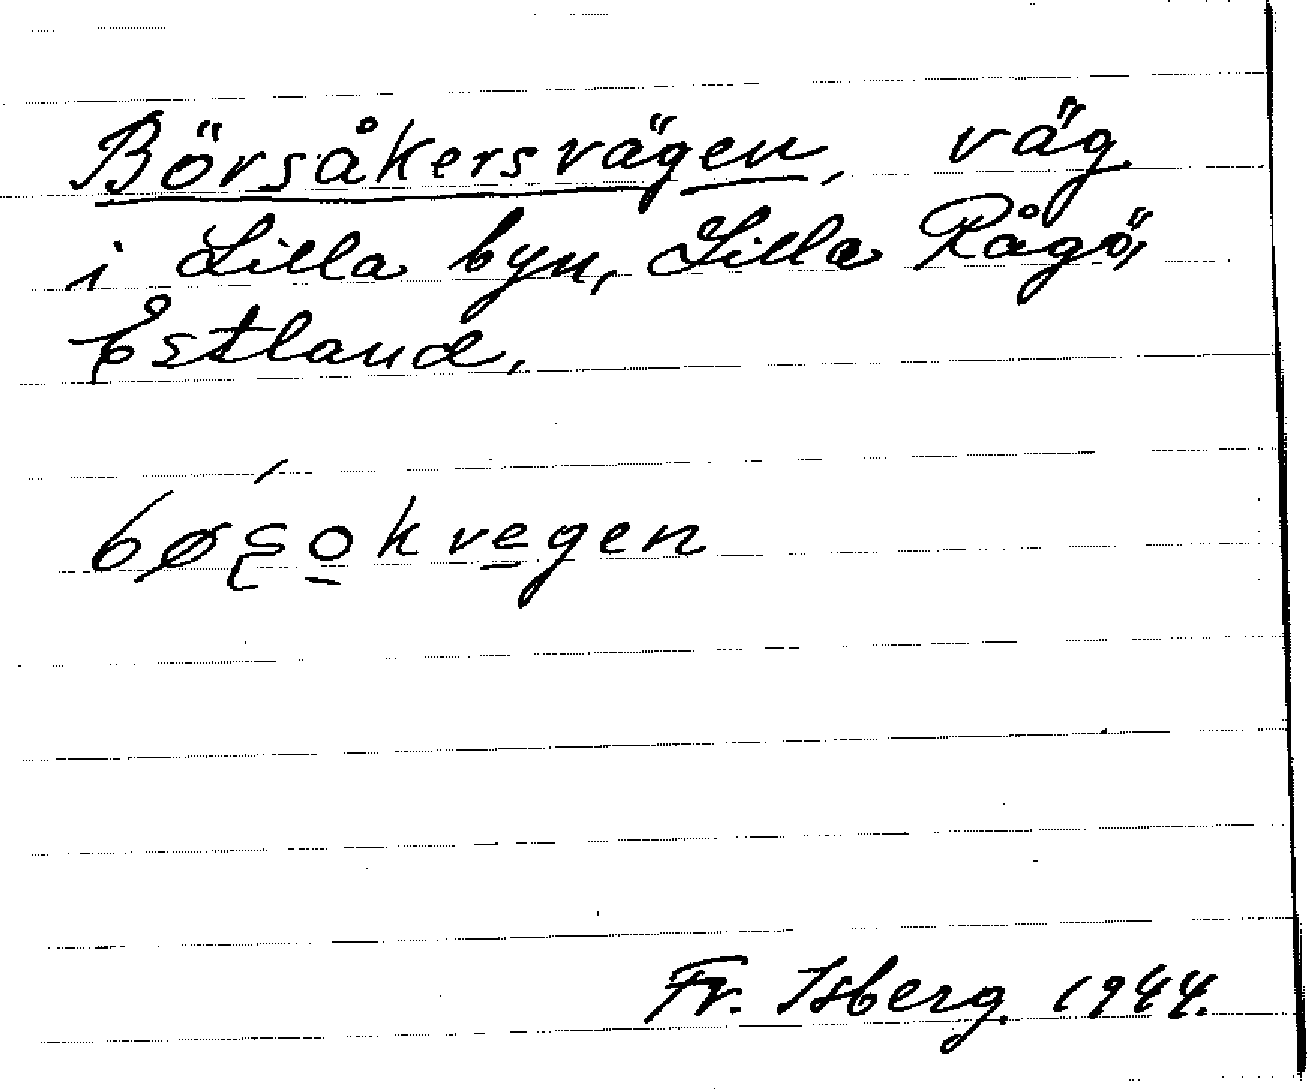 Börsåkersvägen, väg
i Lilla byn, Lilla Rågö,
Estland.
Fr. Isberg. 1944.